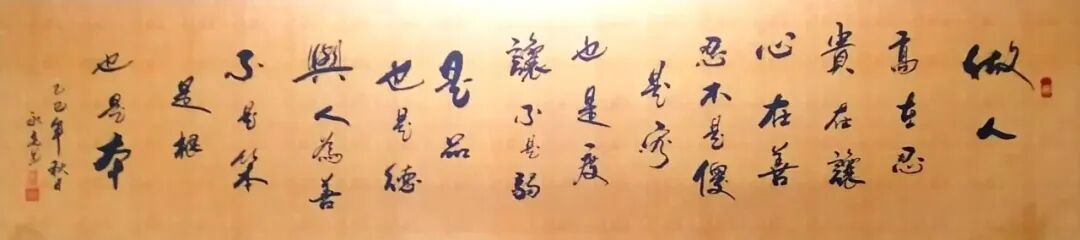 做人
高在忍
貴在讓
心在善
忍不是傻
是容
也是度
讓不是弱
是品
也是德
與人為善
不是笨
是根
也是本
乙巳年秋日